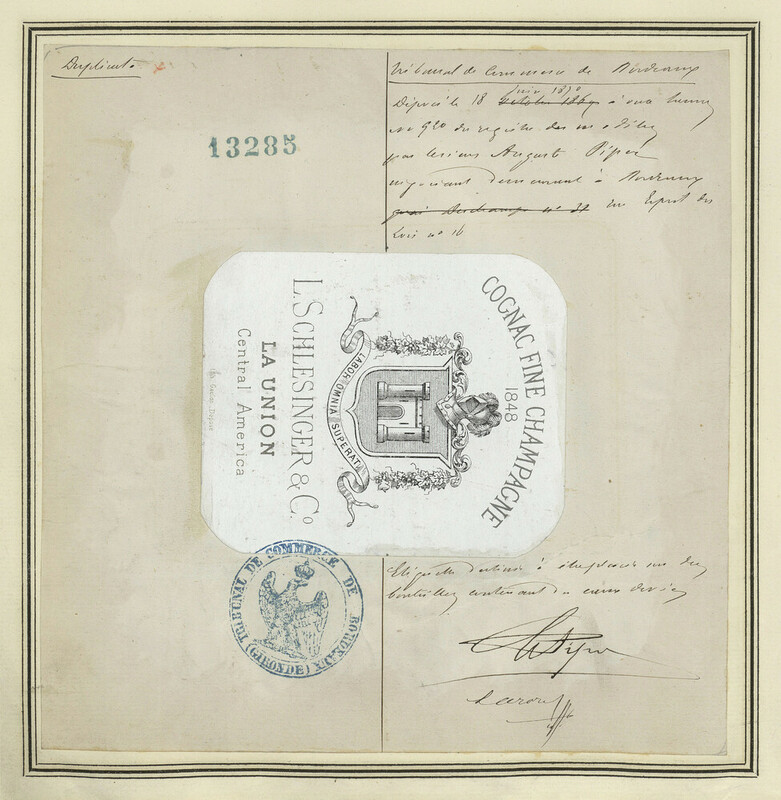 Duplicata
13285
Tribunal de Commerce de Bordeaux
Déposé le 18 octobre 1869 juin 1870 à onze heures
no 920 du registre des modèles
par le sieur Auguste Piper
négociant demeurant à Bordeaux
quai Deschamps no 31 rue Esprit des
Lois no 16
COGNAC FINE CHAMPAGNE
1848
LABOR OMNIA SUPERAT
L. SCHLESINGER & Co
LA UNION
Central America
TRIBUNAL DE COMMERCE DE BORDEAUX
(GIRONDE)
Etiquette destinée à être placée sur des
bouteilles contenant du